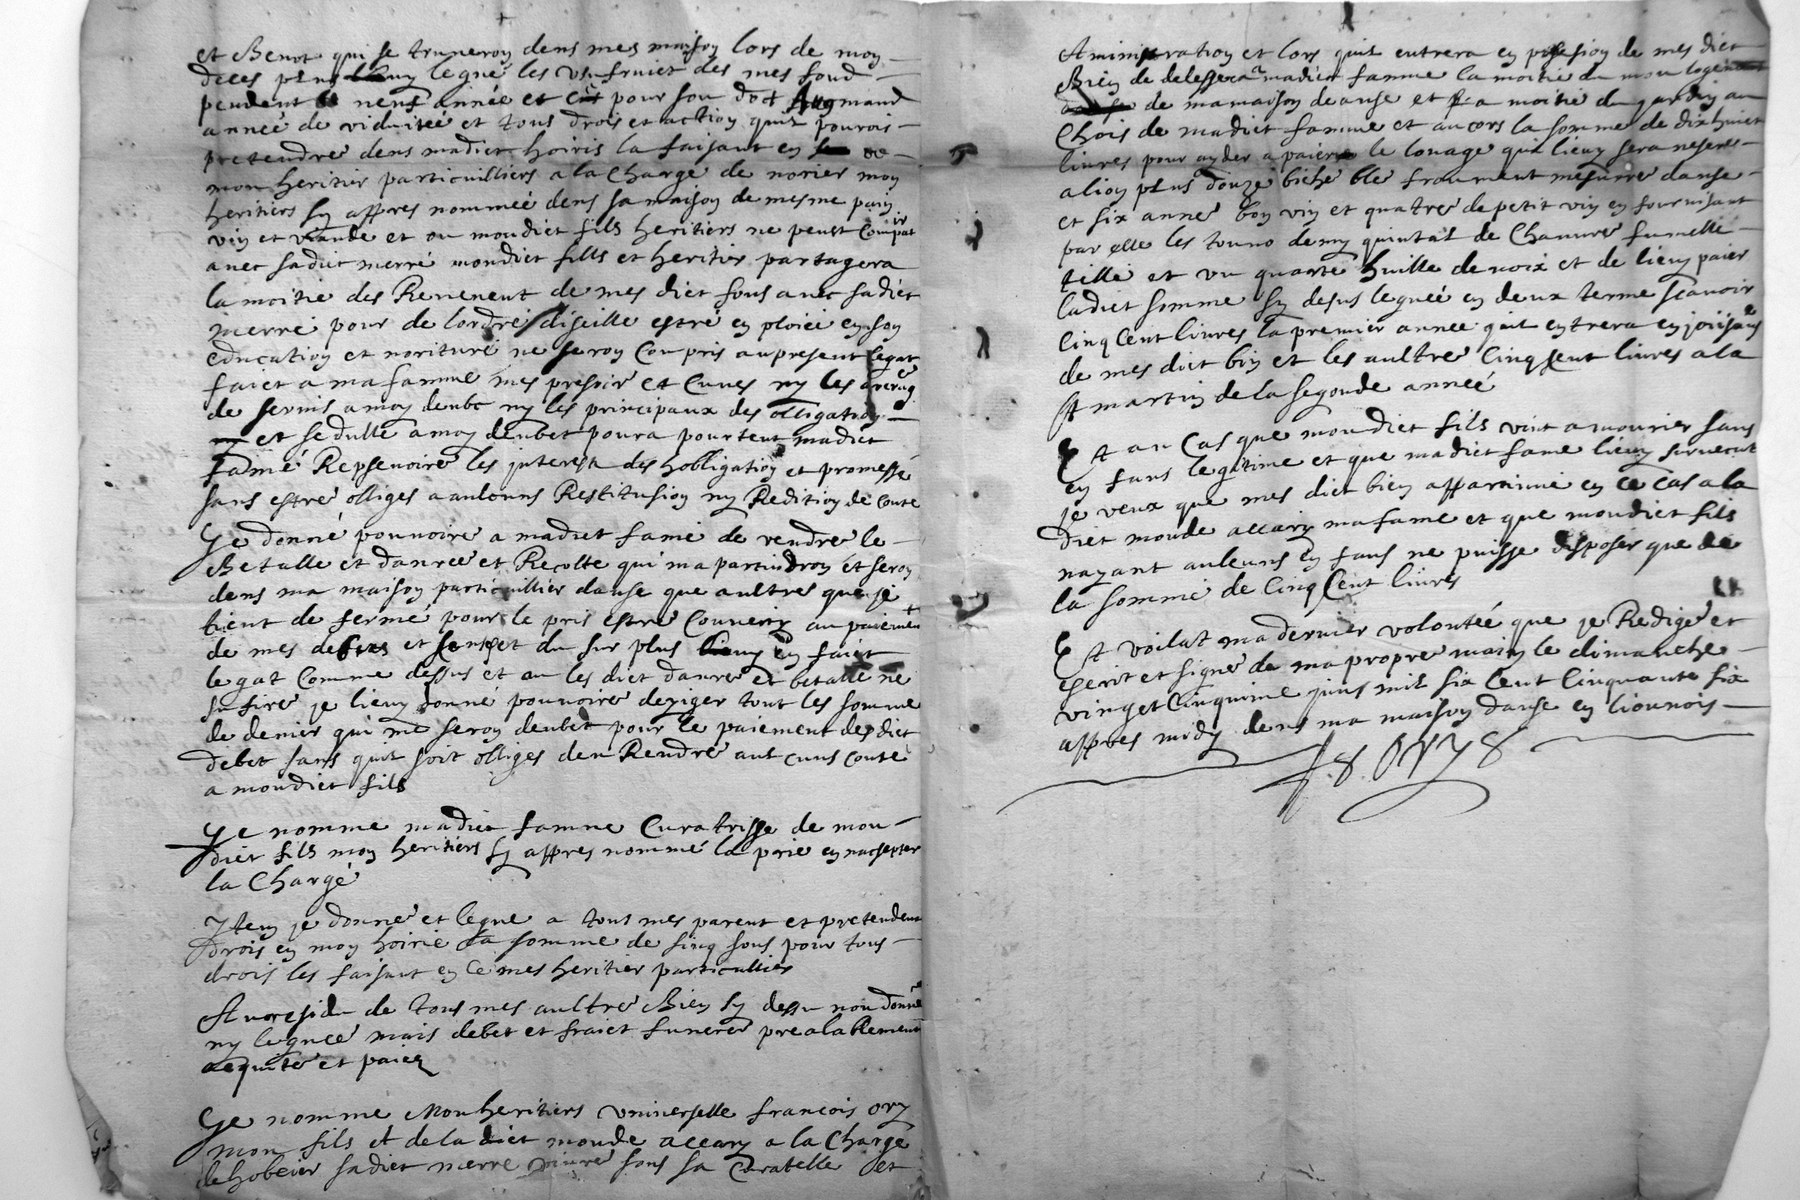 et Benot qui se truneron dens mes maison lors de mon
deces plus lieuy legue les usufruict des mes fond
pendent neuf année et pour son dot Augmand
année de viduiteé et tous drois et action quil pourois
pretendre dens madict hoiris la faisant en ce
mon heritier particuilliers a la charge de norier mon
heritiers sy affres nommeé dens sa maison de mesme pain
vin et viande et ou mondict fils heritiers ne peust compatir
avec sadict merré mondict fills et heritir partagera
la moitié des Reveneut de mes dict fons avec sadict
merre pour de lordre diseille estré en ploieé en son
education et noriture ne seron compris aupresent legat
faict a ma famme mes presoir et cuves ny les arerag
de servis a moy deubt ny les principaux des obligation
et sedulle a moy deubet poura pourtent madict
famé Repsenoire les interest des hobligation et promesse
sans estre obliges a auleuns Restitusion ny Redition de conte
Je donne pounoire a madict fame de vendre le
Betalle et danree et Recolte qui ma partindron et seron
dens ma maison particuillier danse que aultre que je
tient de fermé pour le pris estre convertir au paiement
de mes debtes et du sur plus lieuy en faict
legat comme dessus et au les dict danree et betalle ne
sufire je lieuy donné pounoire dexiger tout les somme
de denier qui me seron deubet pour le paiement des dict
debet sans quil soit obliges den Rendre aut cuns conte
a mondict fils
Je nomme madict famne Curatrisse de mon
dict fils mon heritiers sy affres nommé la prie en nacsepter
la Chargé
Item je donne et legue a tous mes parent et pretendent
drois en mon hoirie la somme de sinq sous pour tous
drois les faisant en ce mes heritier particullier
Au residu de tous mes aultre Bien sy dessu non donné
ny legueé mais debet et fraict funerer prealablement
aequite et paiez
Je nomme Mon heritiers universelle francois ory
mon fils et de la dict monde accary a la charge
de hobeier sadict merre vivre sous sa curatelle et
Aministration et lors quil entrera en posesion de mes dict
Bien de delessera madict famme la moitie du mon logement
de ma maison de anse et la moitie du jardin au
Chois de madict famme et ancors la somme de dixhuict
livres pour ayder a paier le louage que lieuy sera neseres
alion plus douze biche ble froument mesurre danse
et six anneé bon vin et quatre de petit vin en fournisant
par elle les touno demy quintal de Chanure fumelle
tille et un quarte huille de noix et de lieuy paier
ladict somme sy desus legueé en deux terme scavoir
Cinq Cent livres la premier annee quil entrera en joüisans
de mes dict bin et les aultre Cinq sent livres a la
St martin de la segonde anneé
Et au cas que mondict fils vint a mourier sans
en fans legitime et que madict fame lieuy survecut
je veux que mes dict bien affartinne en ce cas a la
dict monde accary ma fame et que mondict fils
nayant auleuns en fans ne puisse disposer que de
la somme de Cinq Cent livres
Et voilat ma dernier volonteé que je Redige et
escrit et signé de ma propre main le dimanche
vinget Cinquime juins mil six Cent Cinquante six
appres midy dens ma maison danse en lionnois
ORY